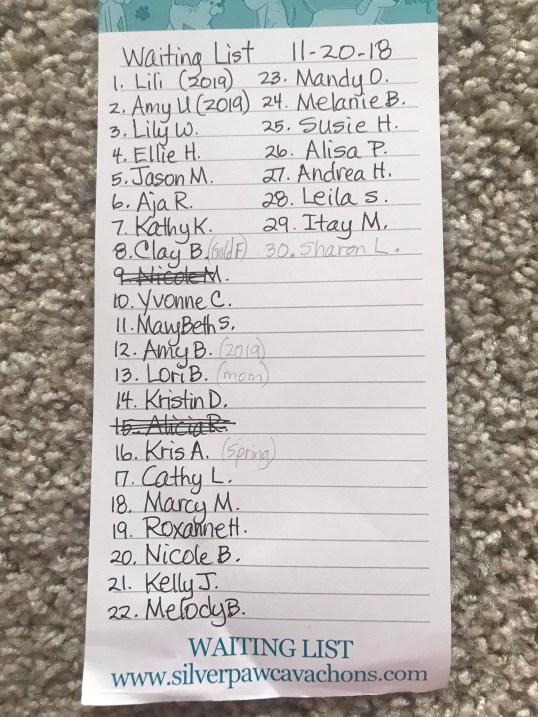 Waiting List 11-20-18
1. Lili (2019)
2. Amy U (2019)
3. Lily W.
4. Ellie H.
5. Jason M.
6. Aja R.
7. Kathy K.
8. Clay B. (Gold F)
9. Nicole M.
10. Yvonne C.
11. MaryBeth S.
12. Amy B. (2019)
13. Lori B. (mom)
14. Kristin D.
15. Alicia R.
16. Kris A. (Spring)
17. Cathy L.
18. Marcy M.
19. Roxanne H.
20. Nicole B.
21. Kelly J.
22. Melody B.
23. Mandy O.
24. Melanie B.
25. Susie H.
26. Alisa P.
27. Andrea H.
28. Leila S.
29. Itay M.
30. Sharon L.
WAITING LIST
www.silverpawcavachons.com